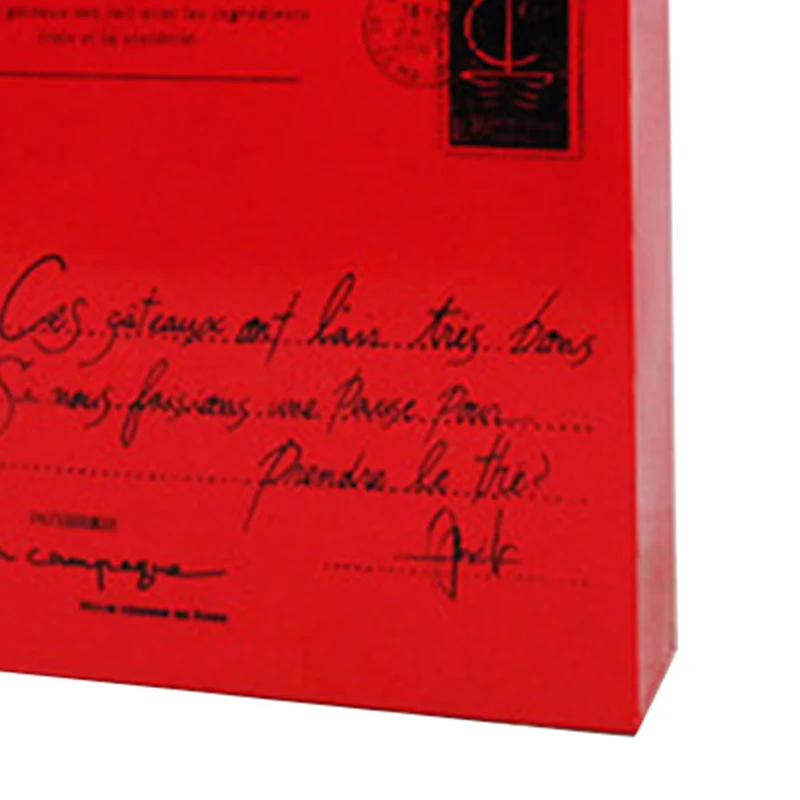 gâteaux ont fait avec les ingrédients
frais et la
Ces gâteaux ont l'air très bons
Si nous faisions une Pause Pour
Prendre le thé?
campagne